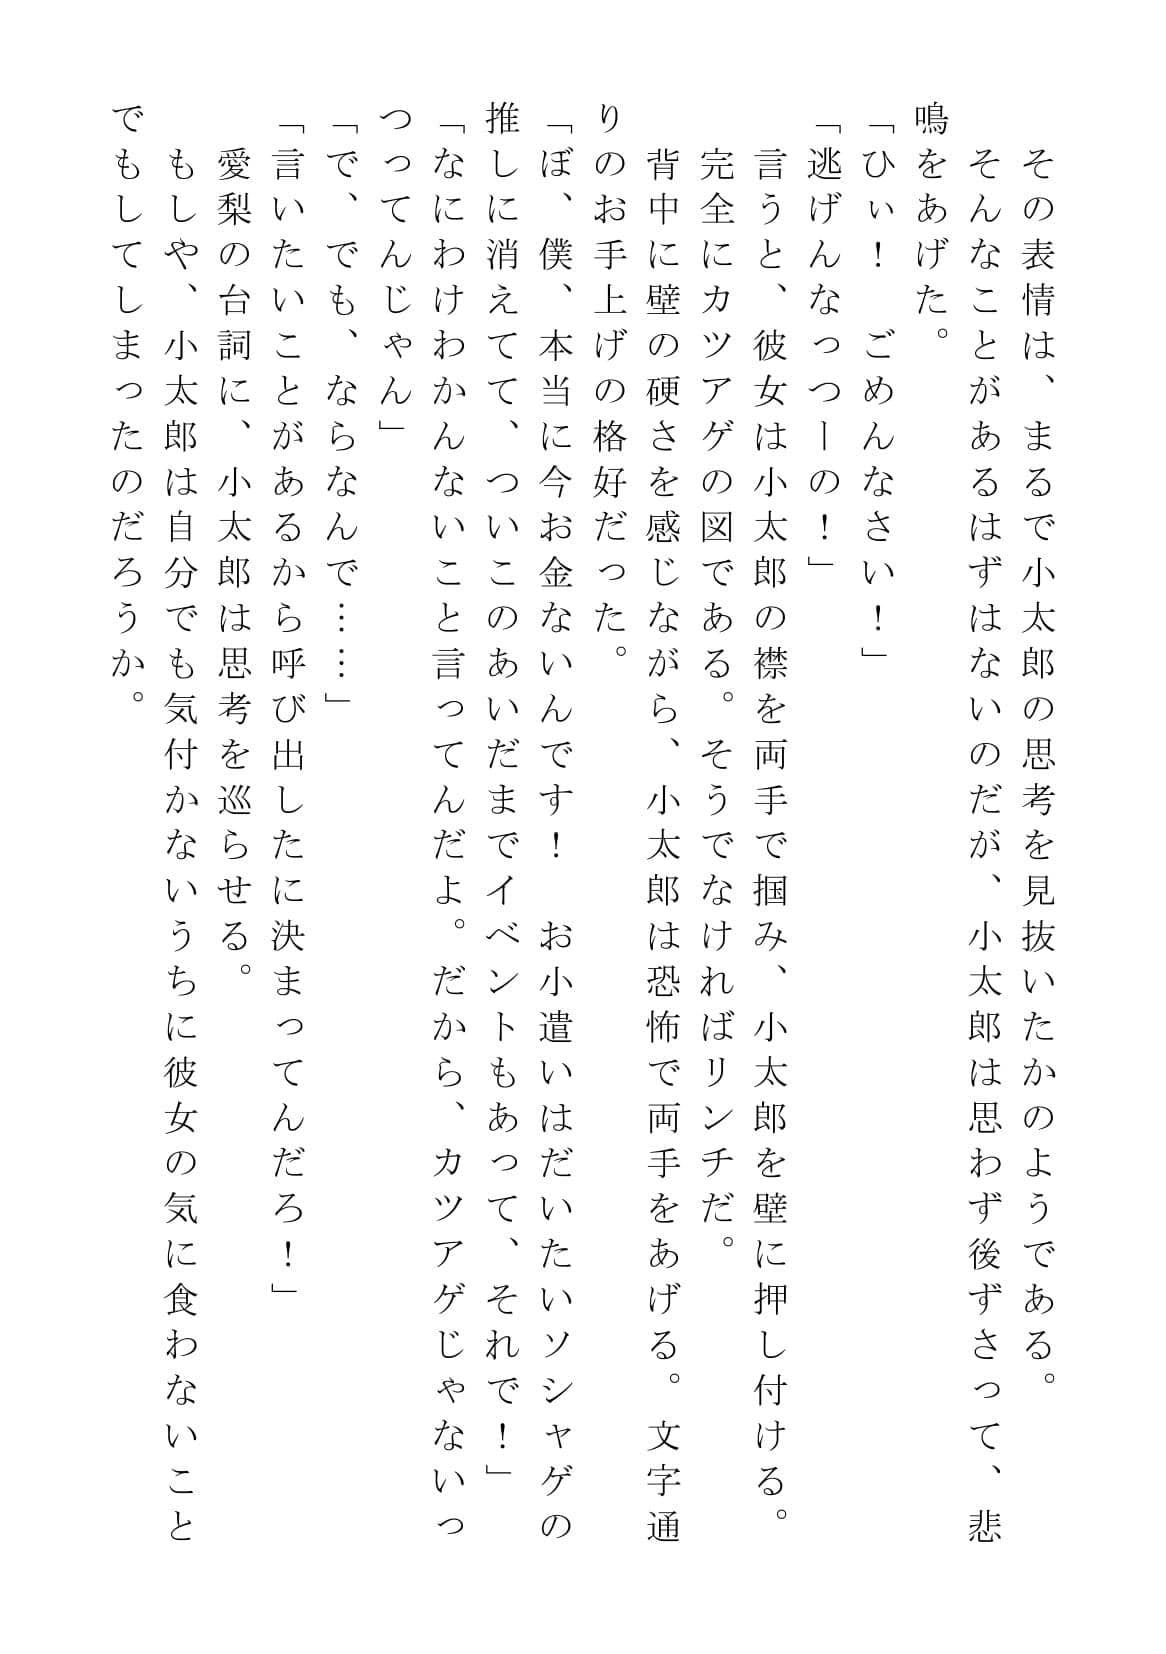 その表情は、まるで小太郎の思考を見抜いたかのようである。
そんなことがあるはずはないのだが、小太郎は思わず後ずさって、悲
鳴をあげた。
「ひぃ！　ごめんなさい！」
「逃げんなっつーの！」
言うと、彼女は小太郎の襟を両手で掴み、小太郎を壁に押し付ける。
完全にカツアゲの図である。そうでなければリンチだ。
背中に壁の硬さを感じながら、小太郎は恐怖で両手をあげる。文字通
りのお手上げの格好だった。
「ぼ、僕、本当に今お金ないんです！　お小遣いはだいたいソシャゲの
推しに消えてて、ついこのあいだまでイベントもあって、それで！」
「なにわけわかんないこと言ってんだよ。だから、カツアゲじゃないっ
つってんじゃん」
「で、でも、ならなんで……」
「言いたいことがあるから呼び出したに決まってんだろ！」
愛梨の台詞に、小太郎は思考を巡らせる。
もしや、小太郎は自分でも気付かないうちに彼女の気に食わないこと
でもしてしまったのだろうか。